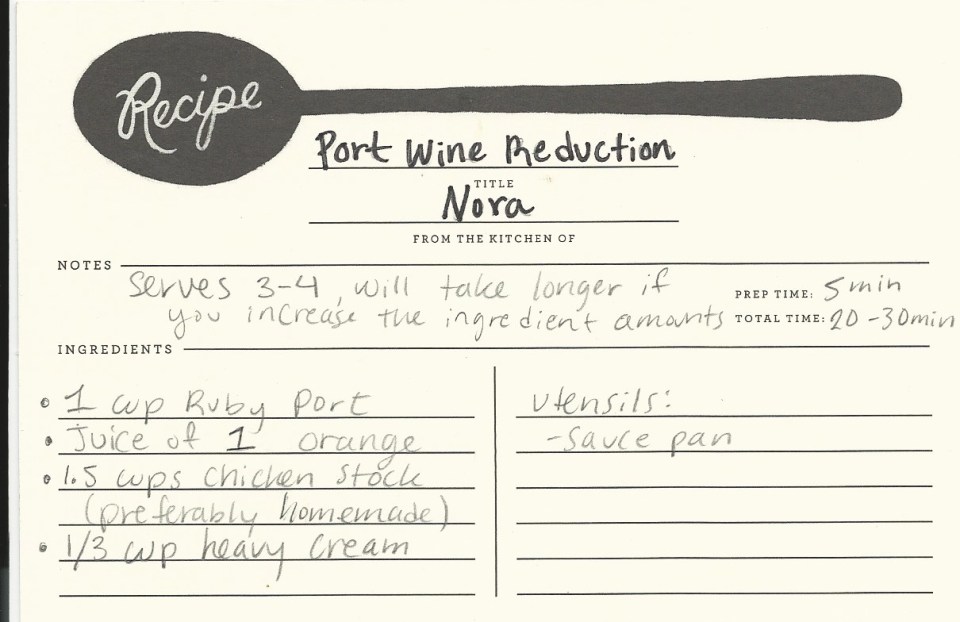 Recipe
Port Wine Reduction
TITLE
Nora
FROM THE KITCHEN OF
NOTES
Serves 3-4, will take longer if
you increase the ingredient amounts
PREP TIME: 5min
TOTAL TIME: 20-30min
INGREDIENTS
• 1 cup Ruby Port
• Juice of 1 orange
• 1.5 cups Chicken Stock
(preferably homemade)
• 1/3 cup heavy Cream
Utensils:
-Sauce pan